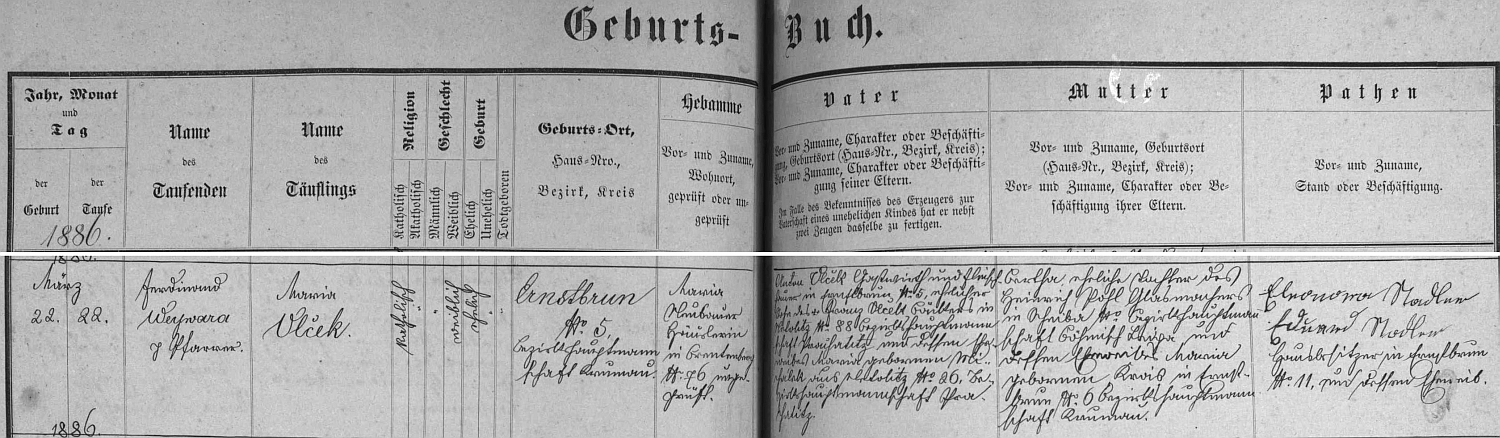 Geburts-Buch.
Jahr, Monat
und
Tag
der
Geburt
der
Taufe
1886.
Name
des
Taufenden
Name
des
Täuflings
Religion
Katholisch
Akatholisch
Geschlecht
Männlich
Weiblich
Geburt
Ehelich
Unehelich
Todtgeboren
Geburts-Ort,
Haus-Nro.,
Bezirk, Kreis
Hebamme
Vor- und Zuname,
Wohnort,
geprüft oder un-
geprüft
Vater
Vor- und Zuname, Charakter oder Beschäfti-
gung, Geburtsort (Haus-Nr., Bezirk, Kreis);
Vor- und Zuname, Charakter oder Beschäfti-
gung seiner Eltern.
Im Falle des Bekenntnisses des Erzeugers zur
Vaterschaft eines unehelichen Kindes hat er nebst
zwei Zeugen dasselbe zu fertigen.
Mutter
Vor- und Zuname, Geburtsort
(Haus-Nr., Bezirk, Kreis);
Vor- und Zuname, Charakter oder Be-
schäftigung ihrer Eltern.
Pathen
Vor- und Zuname,
Stand oder Beschäftigung.
1886.
März
22. 22.
Ferdinand
Weywara
Pfarrer.
Maria
Vlček.
katholisch
weiblich
ehelich
Ernstbrun
No 5,
Bezirkshauptmann
schaft Krumau.
Maria
Neubauer
Häuslerin
in
No 76 unge-
prüft.
Anton Vlček Gastwirth und Fleisch-
hauer in Ernstbrun No 5, ehelicher
Sohn des Franz Vlček
in
Netolitz No 88 Bezirkshauptmann
schaft Prachatitz, und dessen Ehe
weibes Maria gebornen
aus Netolitz No 26. Be-
zirkshauptmannschaft Pra-
chatitz.
Bertha, eheliche Tochter des
Heinrich Pohl Glasmachers
in No Bezirkshauptman
schaft Böhmisch Leipa, und
dessen Eheweibes Maria
gebornen Krois in Ernst-
brun No 6 Bezirkshauptmann
schaft Krumau.
Eleonora Stadler
Eduard Stadler
Hausbesitzer in Ernstbrun
No 11. und dessen Eheweib.
1886.